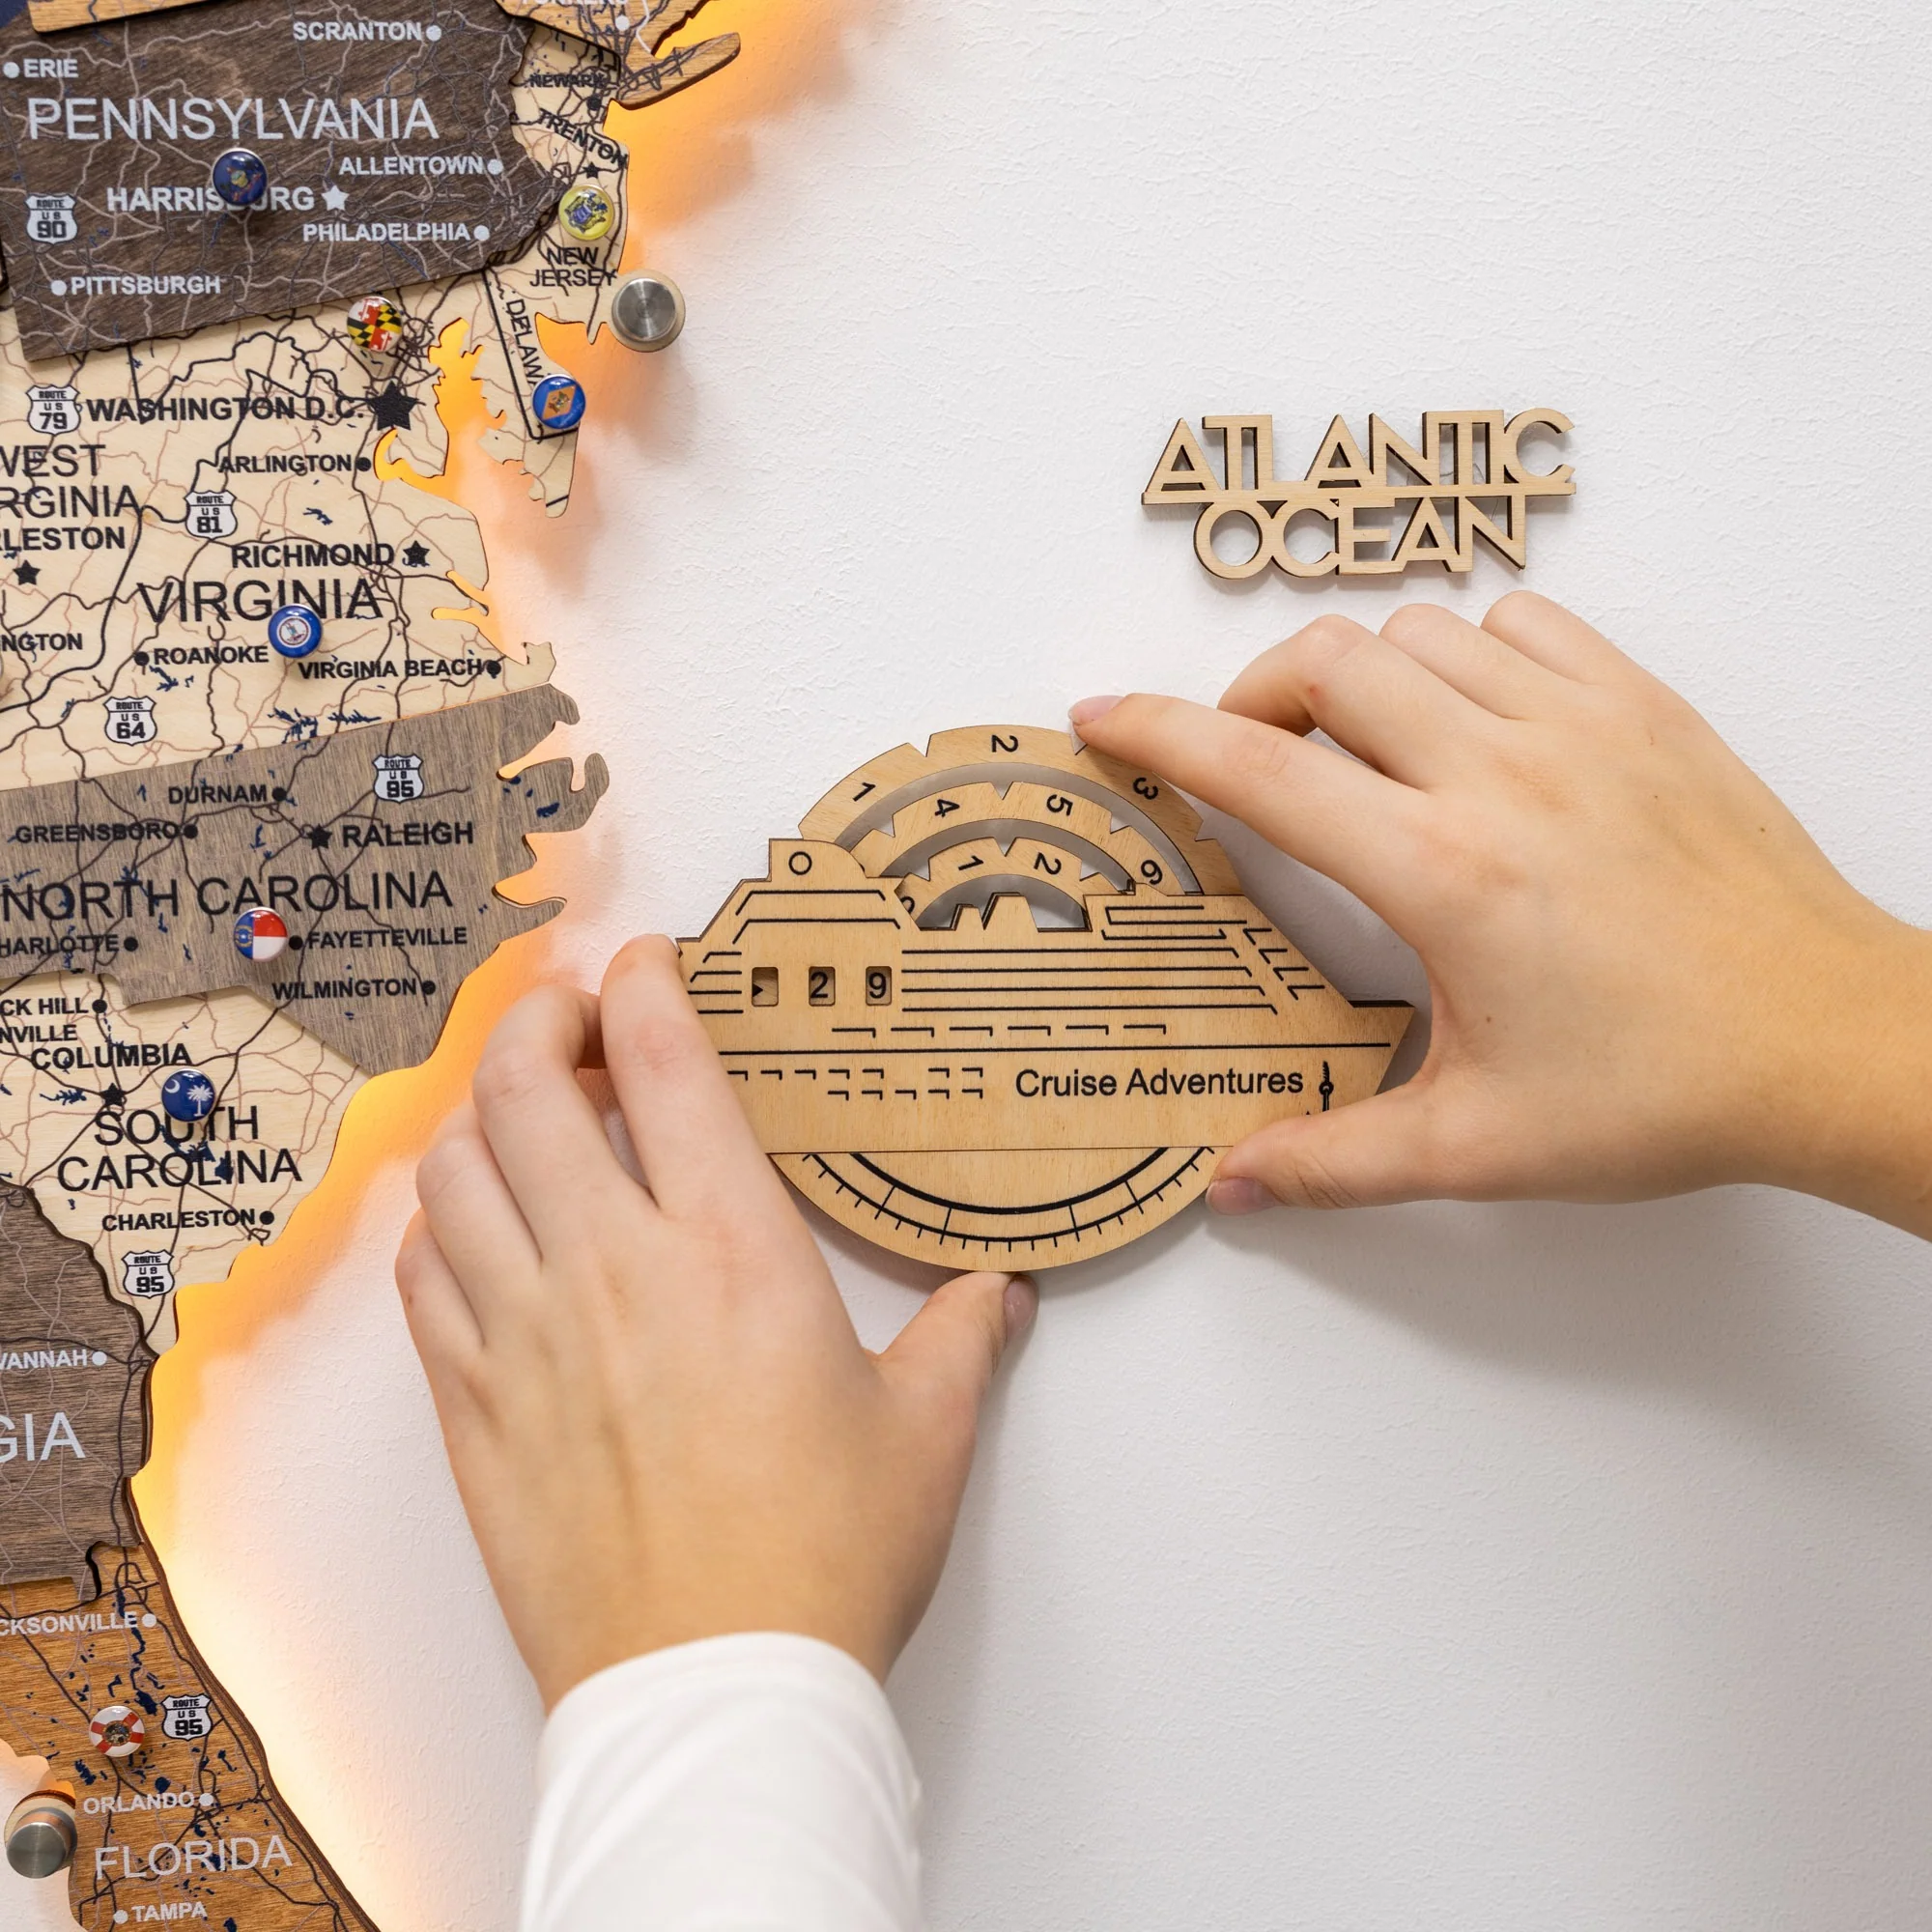 SCRANTON
ERIE
NEWARK
PENNSYLVANIA
TRENTON
ALLENTOWN
HARRISBURG
ROUTE
US
90
PHILADELPHIA
NEW
JERSEY
PITTSBURGH
DELAW
ROUTE
US
79
WASHINGTON D.C.
WEST
RGINIA
ARLINGTON
ROUTE
US
81
LESTON
RICHMOND
VIRGINIA
NGTON
ROANOKE
VIRGINIA BEACH
ROUTE
US
64
ROUTE
US
95
DURNAM
GREENSBORO
RALEIGH
NORTH CAROLINA
HARLOTTE
FAYETTEVILLE
WILMINGTON
CK HILL
NVILLE
COLUMBIA
SOUTH
CAROLINA
CHARLESTON
ROUTE
US
95
VANNAH
GIA
CKSONVILLE
ROUTE
US
95
ORLANDO
FLORIDA
TAMPA
ATLANTIC
OCEAN
1 2 3
4 5 6
1 2
2 9
Cruise Adventures